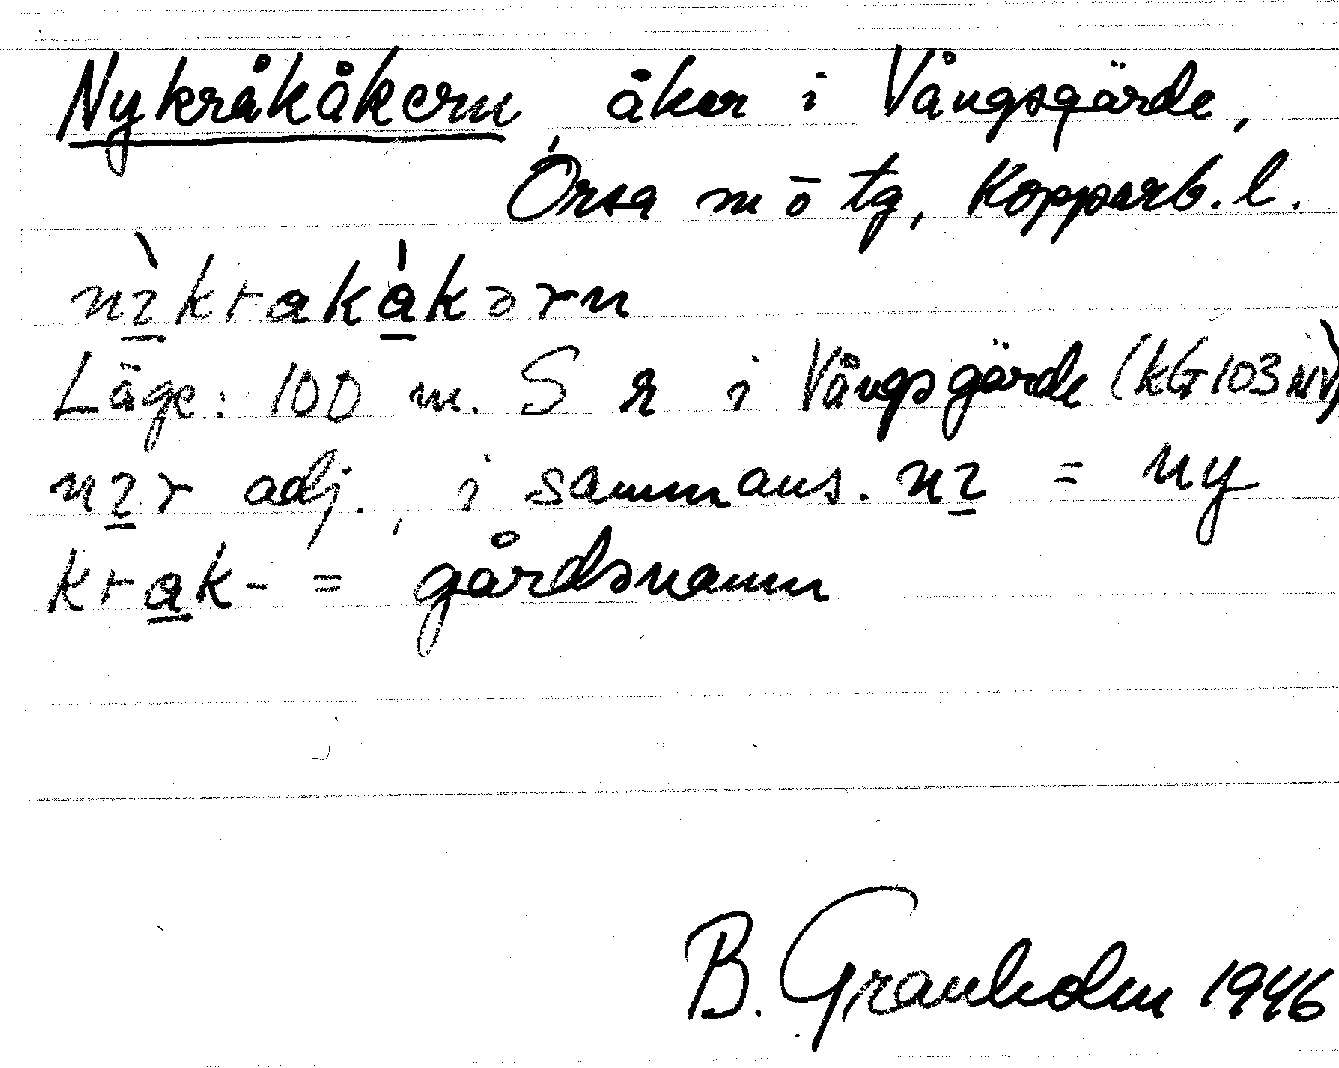 Nykråkåkern, åker i Vångsgärde,
Orsa sn ö tg, Kopparb. l.
Läge: 100 m. S r i Vångsgärde (kG 103 NV)
adj., i sammans. = ny
krak- = gårdsnamn
B. Granholm 1946